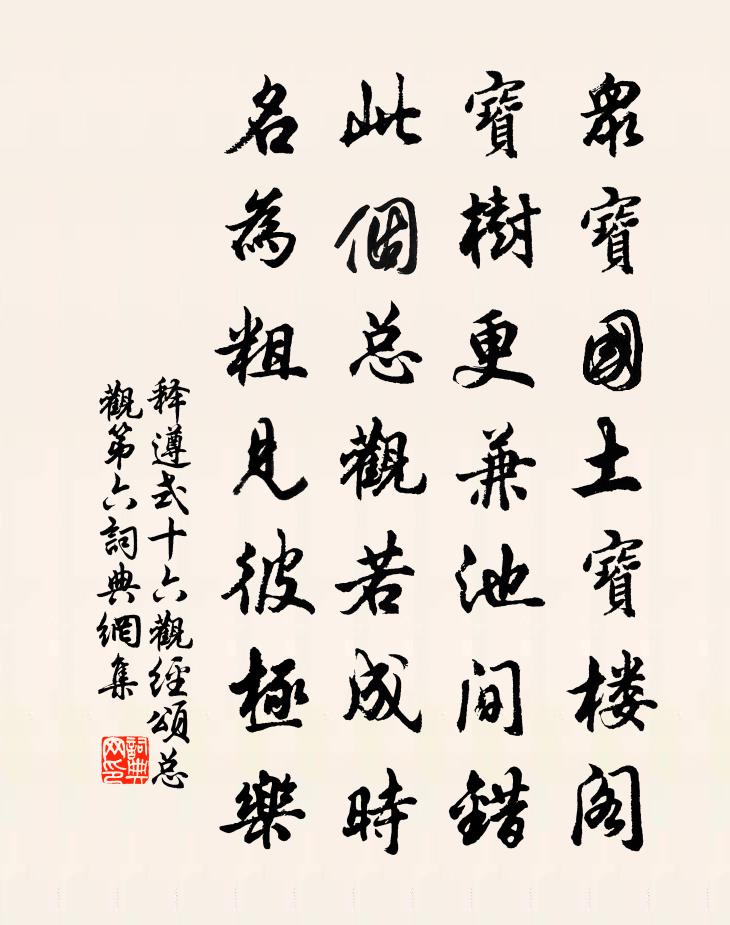 眾寶國土寶楼阁
寶樹更兼池间錯
此個总觀若成時
名為粗見彼極樂
释遵式十六觀經頌总
觀第六詞典網集
詞典网印